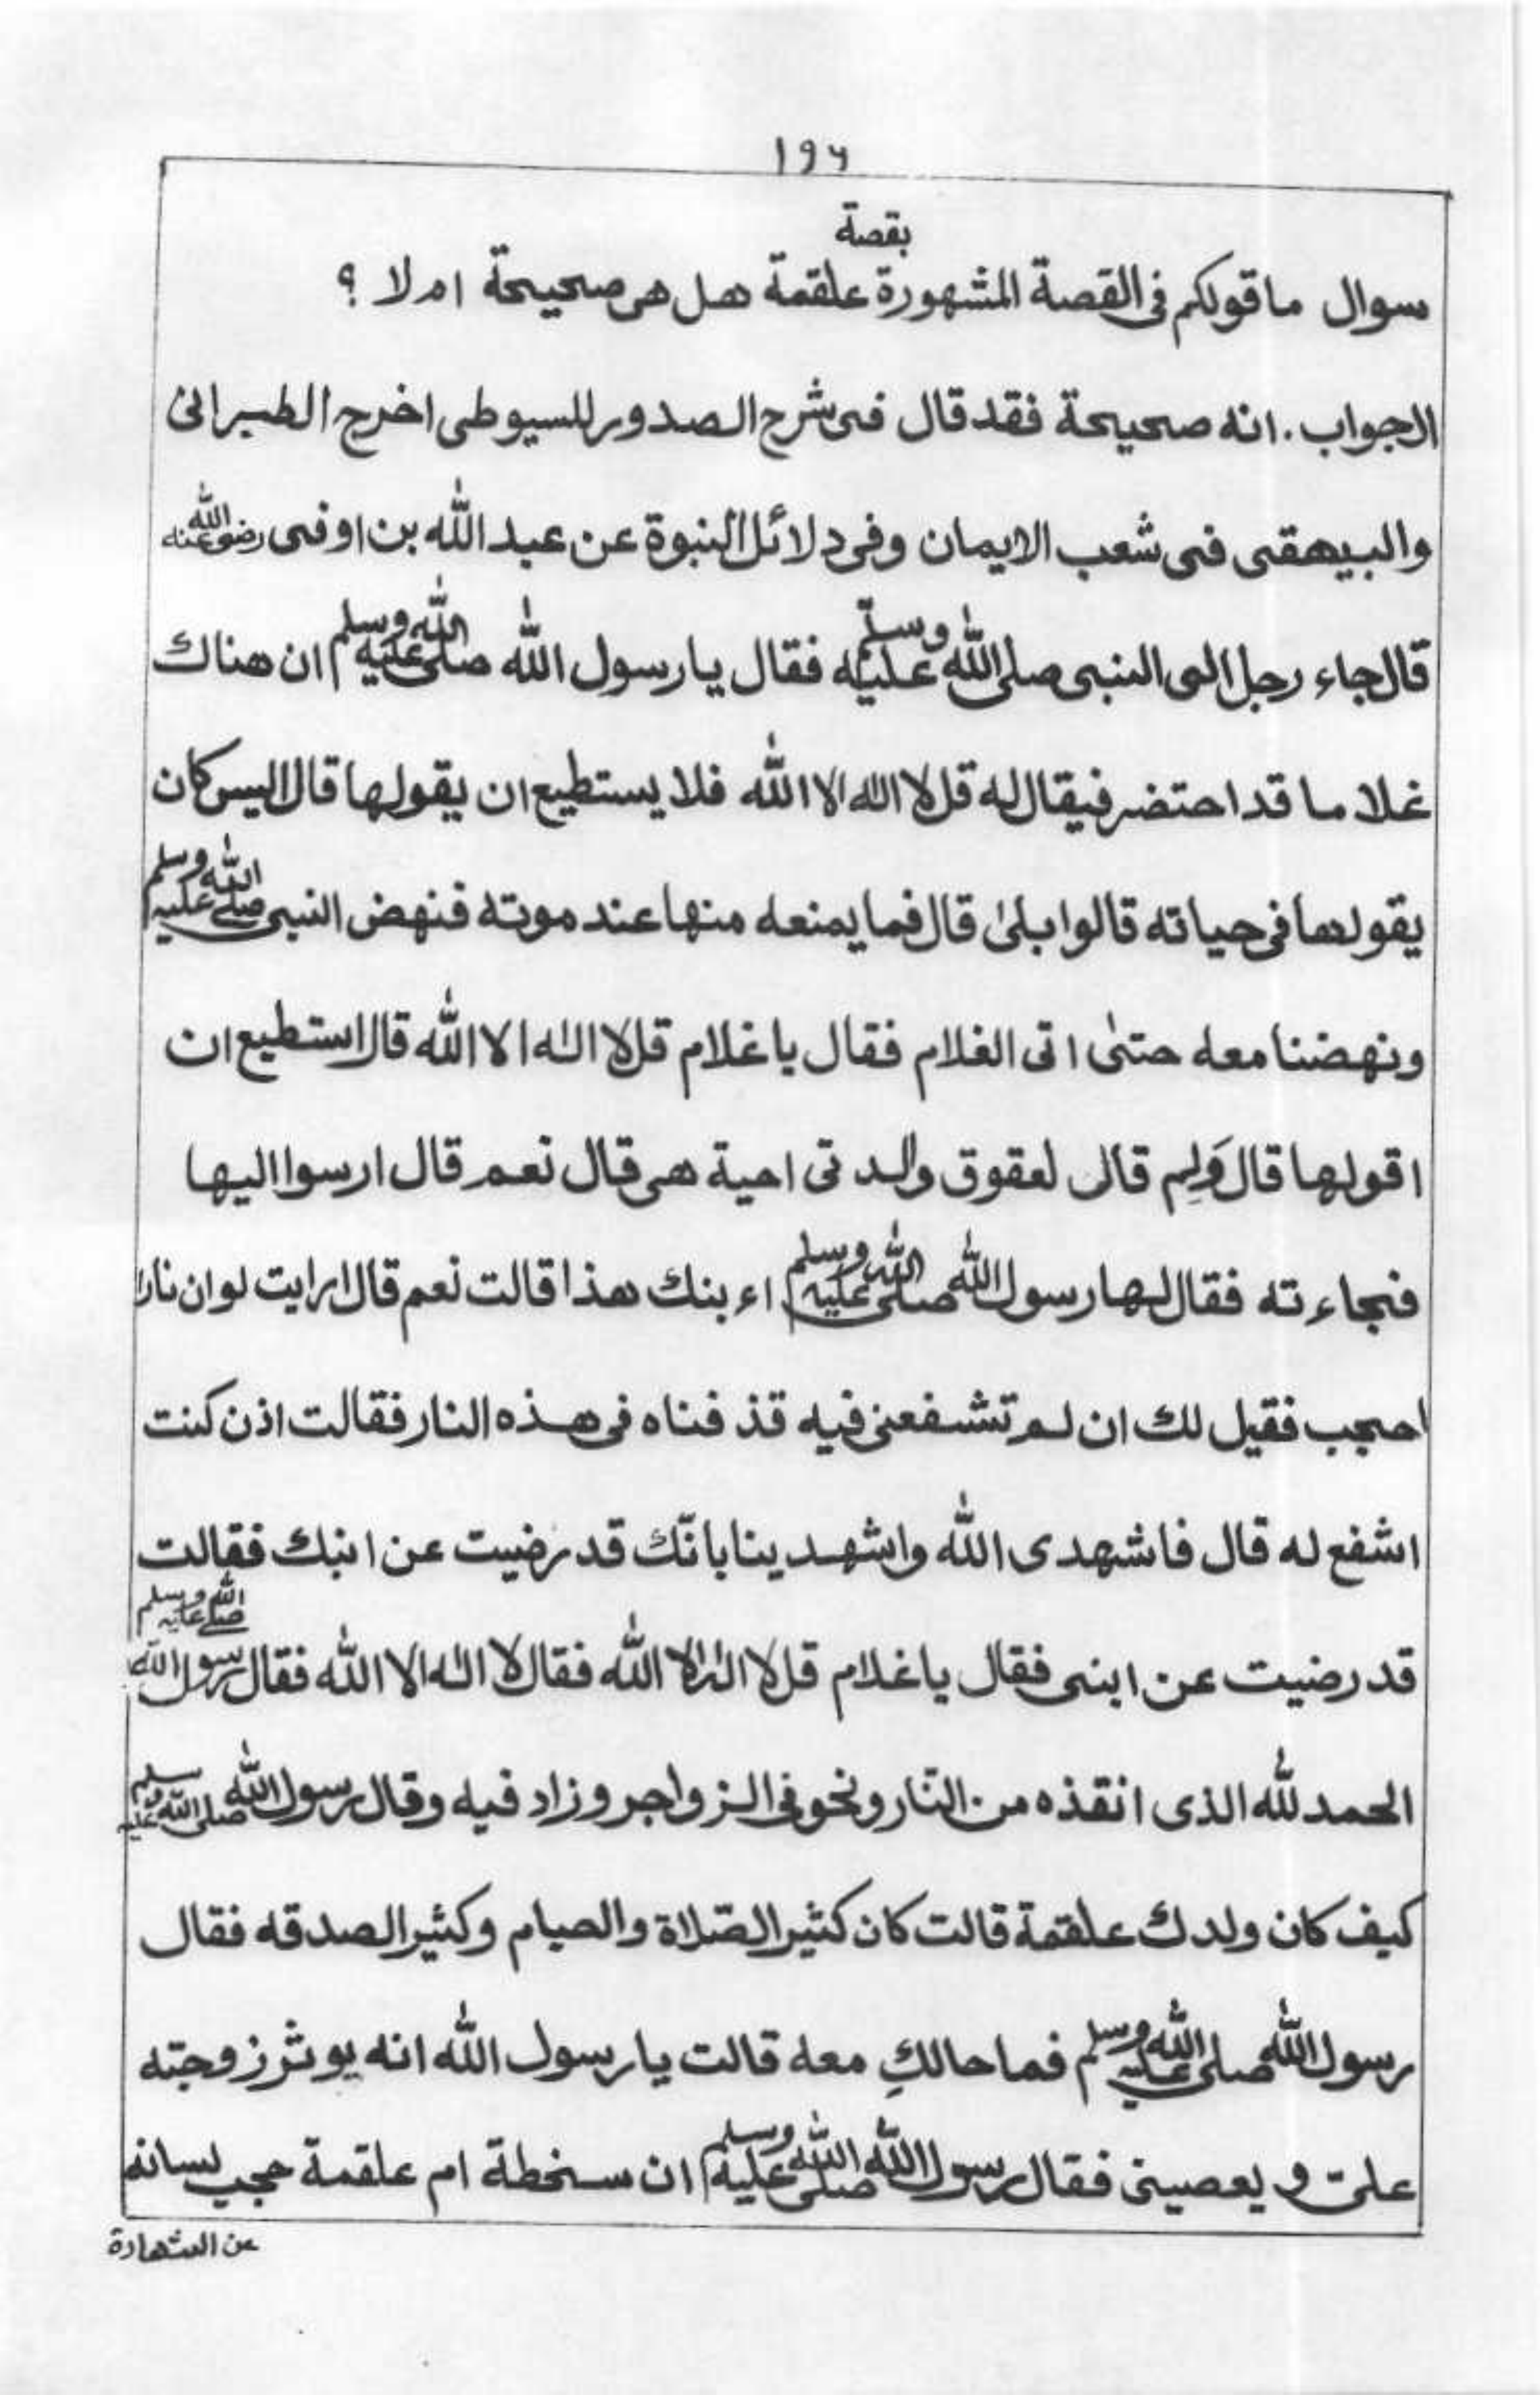 ۱۹۶
بقصة
سوال ماقولكم فى القصة المشهورة علقمة هل هى صحيحة ام لا ؟
الجواب. انه صحيحة فقد قال فى شرح الصدور للسيوطى اخرج الطبرانى
والبيهقى فى شعب الايمان وفى دلائل النبوة عن عبد الله بن اوفى رضى الله عنه
قال جاء رجل الى النبى صلى الله عليه وسلم فقال يا رسول الله صلى الله عليه وسلم ان هناك
غلاما قد احتضر فيقال له قل لا اله الا الله فلا يستطيع ان يقولها قال اليس كان
يقولها فى حياته قالوا بلىٰ قال فما يمنعه منها عند موته فنهض النبى صلى الله عليه وسلم
ونهضنا معه حتىٰ اتى الغلام فقال يا غلام قل لا اله الا الله قال استطيع ان
اقولها قال وَلِم قال لعقوق والدتى احية هى قال نعم قال ارسوا اليها
فجاءته فقال لها رسول الله صلى الله عليه وسلم اءبنك هذا قالت نعم قال ارايت لوان نارا
احجب فقيل لك ان لم تشفعنى فيه قذفناه فى هذه النار فقالت اذن كنت
اشفع له قال فاشهدى الله واشهدينا بانّك قد رضيت عن ابنك فقالت
قد رضيت عن ابنى فقال يا غلام قل لا اله الا الله فقال لا اله الا الله فقال رسول الله صلى الله عليه وسلم
الحمد لله الذى انقذه من النّار ونحو فى الزواجر وزاد فيه وقال رسول الله صلى الله عليه وسلم
كيف كان ولدك علقمة قالت كان كثير الصّلاة والصيام وكثير الصدقه فقال
رسول الله صلى الله عليه وسلم فما حالكِ معه قالت يا رسول الله انه يوثر زوجته
علىّ و يعصينى فقال رسول الله صلى الله عليه وسلم ان سخطة ام علقمة حجب لسانه
عن الشهادة